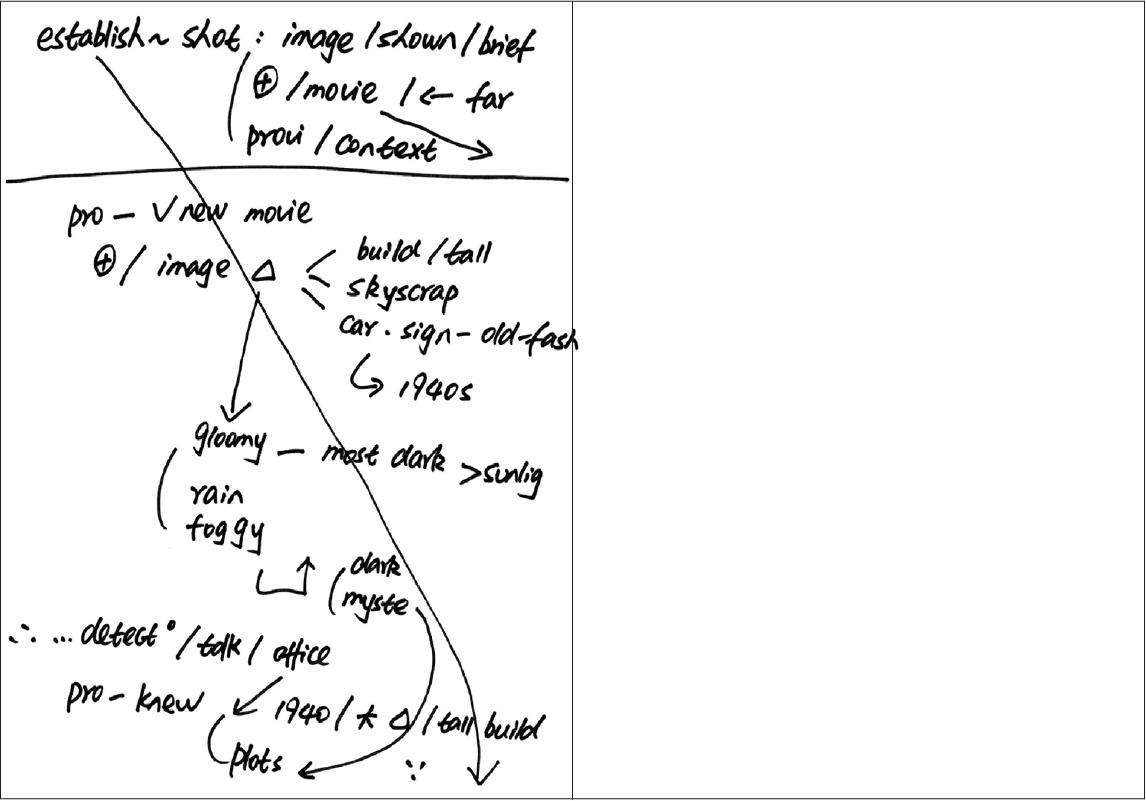 establish~ shot : image / shown / brief
⊕ / movie / ← far
provi / context
pro – √ new movie
⊕ / image △
build / tall
skyscrap
car · sign – old-fash
↳ 1940s
gloomy – most dark > sunlig
rain
foggy
dark
myste
∴ ... detect° / talk / office
pro – knew
1940 / * △ / tall build
plots
∵